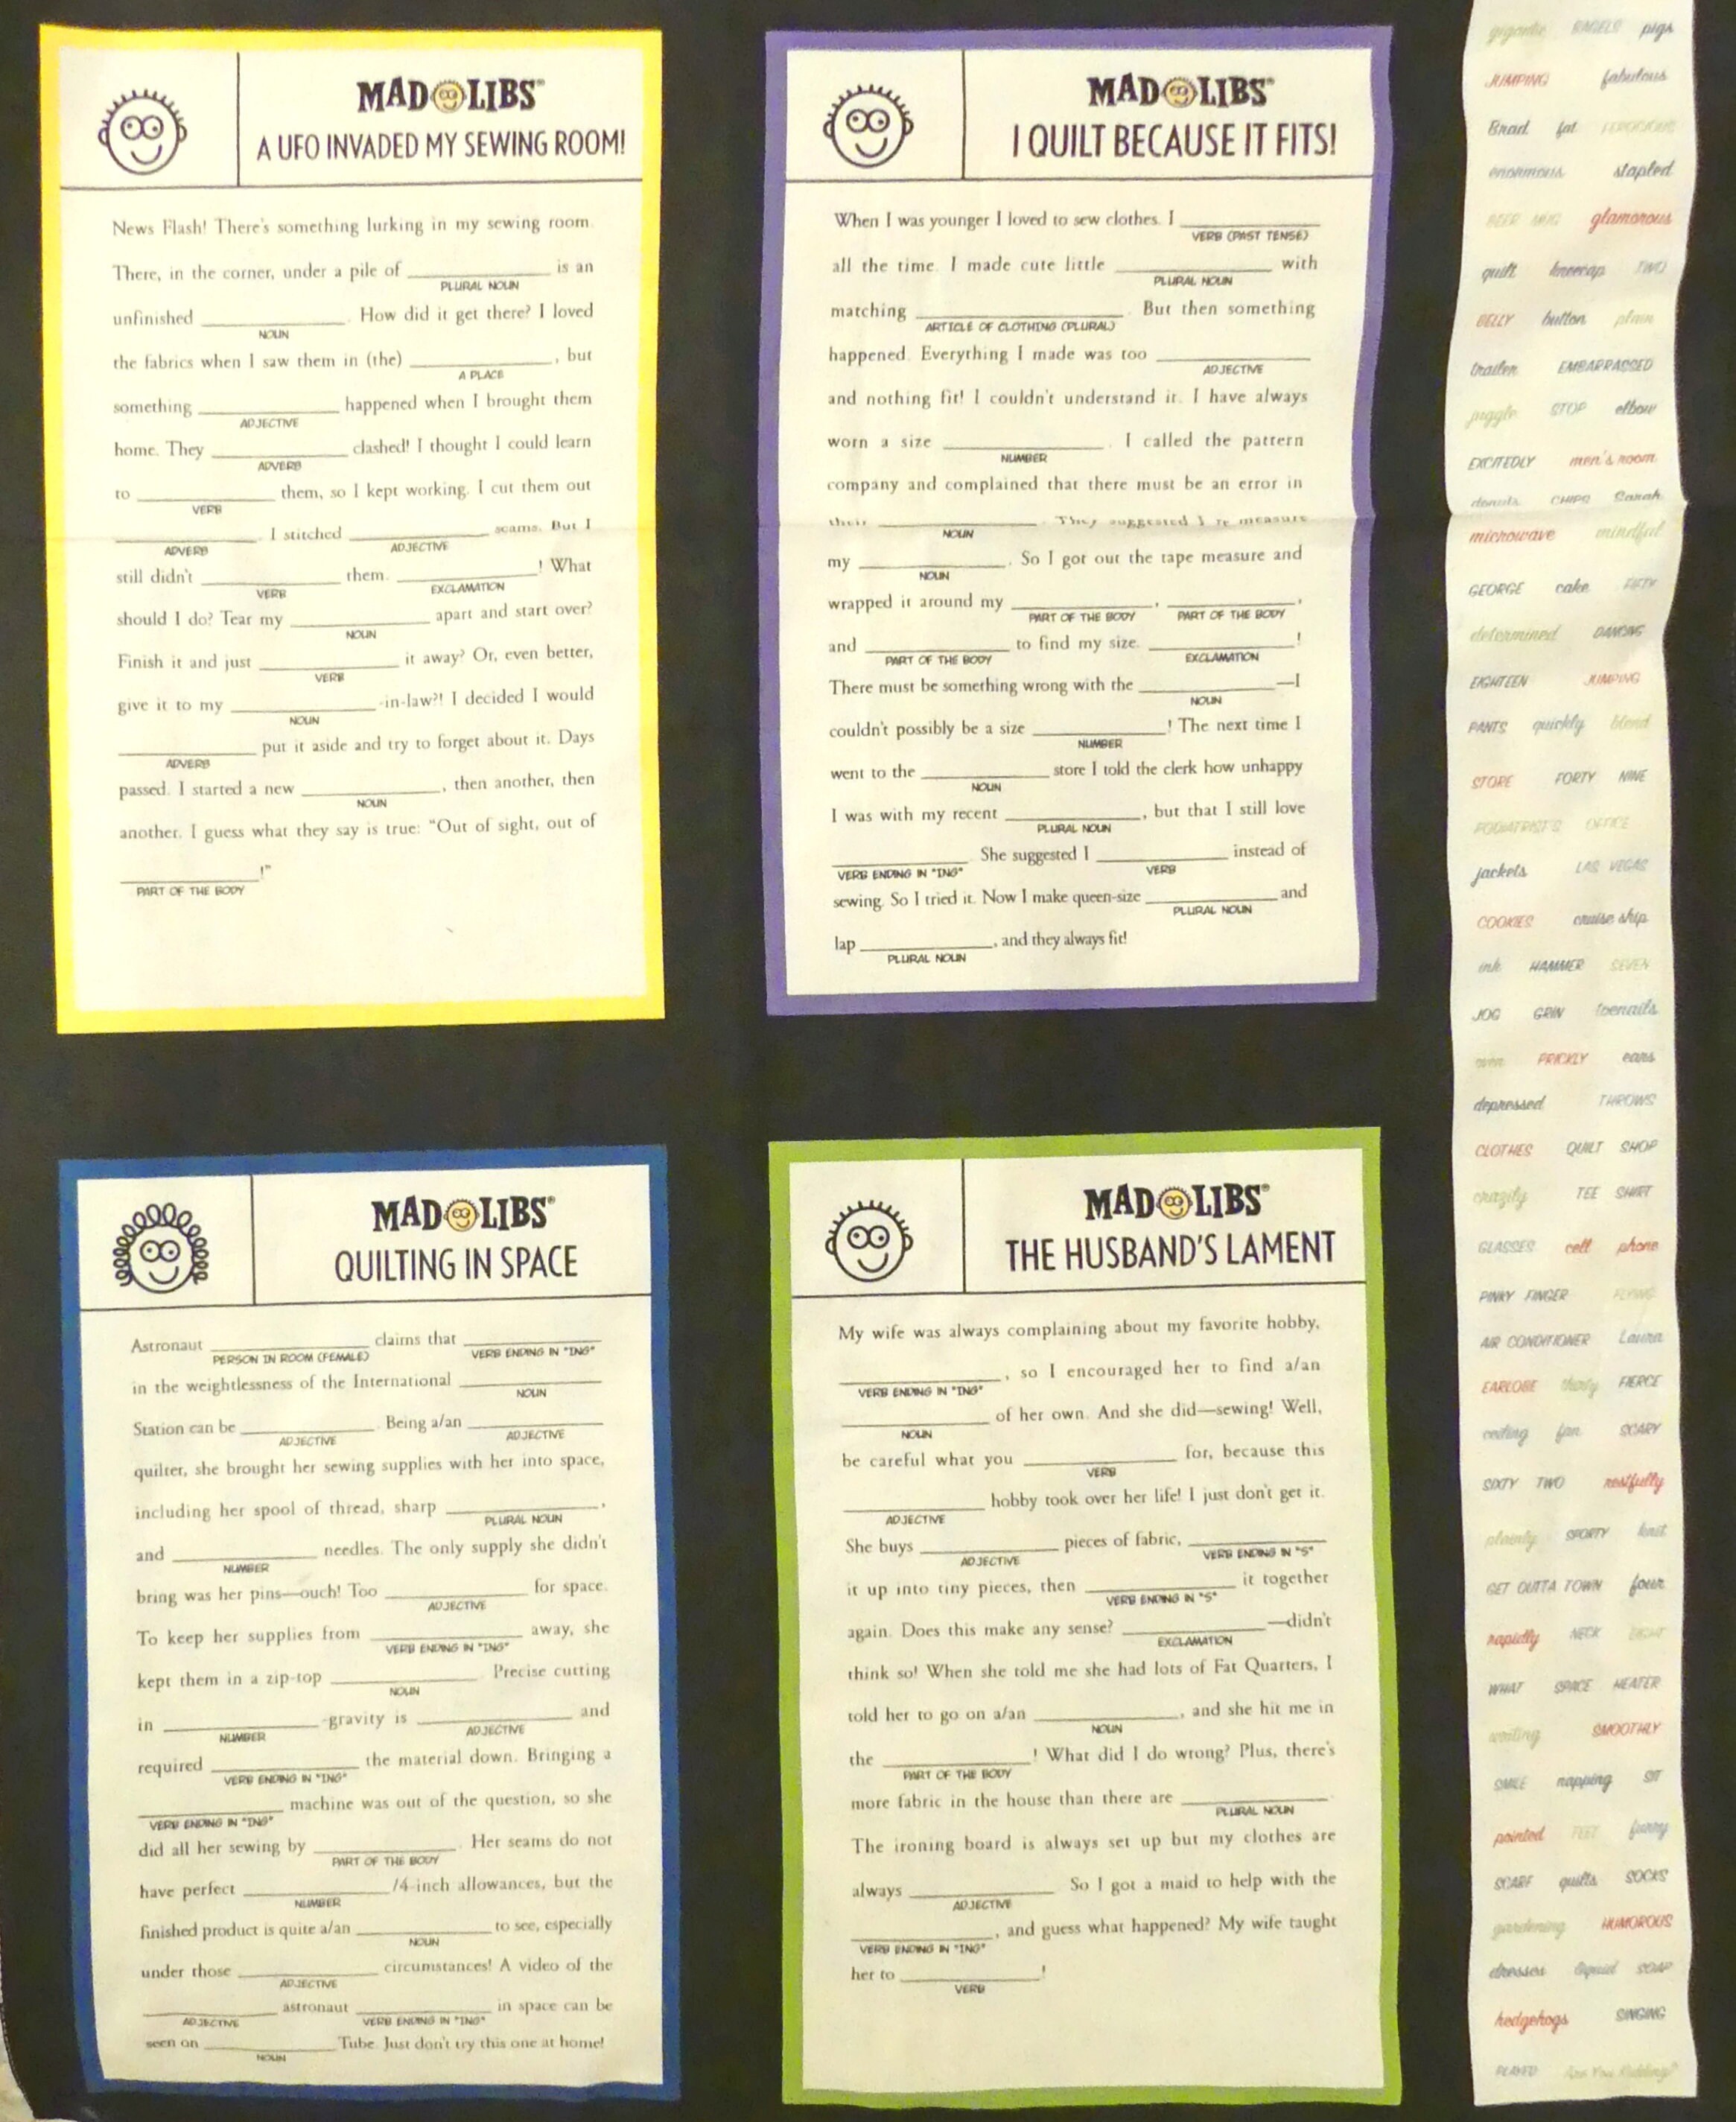 MAD LIBS®
A UFO INVADED MY SEWING ROOM!
News Flash! There's something lurking in my sewing room.
There, in the corner, under a pile of ____________ is an
PLURAL NOUN
unfinished ____________. How did it get there? I loved
NOUN
the fabrics when I saw them in (the) ____________, but
A PLACE
something ____________ happened when I brought them
ADJECTIVE
home. They ____________ clashed! I thought I could learn
ADVERB
to ____________ them, so I kept working. I cut them out
VERB
____________. I stitched ____________ seams. But I
ADVERB ADJECTIVE
still didn't ____________ them. ____________! What
VERB EXCLAMATION
should I do? Tear my ____________ apart and start over?
NOUN
Finish it and just ____________ it away? Or, even better,
VERB
give it to my ____________-in-law?! I decided I would
NOUN
____________ put it aside and try to forget about it. Days
ADVERB
passed. I started a new ____________, then another, then
NOUN
another. I guess what they say is true: "Out of sight, out of
____________!"
PART OF THE BODY
MAD LIBS®
I QUILT BECAUSE IT FITS!
When I was younger I loved to sew clothes. I ____________
VERB (PAST TENSE)
all the time. I made cute little ____________ with
PLURAL NOUN
matching ____________. But then something
ARTICLE OF CLOTHING (PLURAL)
happened. Everything I made was too ____________
ADJECTIVE
and nothing fit! I couldn't understand it. I have always
worn a size ____________. I called the pattern
NUMBER
company and complained that there must be an error in
their ____________. They suggested I re-measure
NOUN
my ____________. So I got out the tape measure and
NOUN
wrapped it around my ____________, ____________,
PART OF THE BODY PART OF THE BODY
and ____________ to find my size. ____________!
PART OF THE BODY EXCLAMATION
There must be something wrong with the ____________—I
NOUN
couldn't possibly be a size ____________! The next time I
NUMBER
went to the ____________ store I told the clerk how unhappy
NOUN
I was with my recent ____________, but that I still love
PLURAL NOUN
____________. She suggested I ____________ instead of
VERB ENDING IN "ING" VERB
sewing. So I tried it. Now I make queen-size ____________ and
PLURAL NOUN
lap ____________, and they always fit!
PLURAL NOUN
MAD LIBS®
QUILTING IN SPACE
Astronaut ____________ claims that ____________
PERSON IN ROOM (FEMALE) VERB ENDING IN "ING"
in the weightlessness of the International ____________
NOUN
Station can be ____________. Being a/an ____________
ADJECTIVE ADJECTIVE
quilter, she brought her sewing supplies with her into space,
including her spool of thread, sharp ____________,
PLURAL NOUN
and ____________ needles. The only supply she didn't
NUMBER
bring was her pins—ouch! Too ____________ for space.
ADJECTIVE
To keep her supplies from ____________ away, she
VERB ENDING IN "ING"
kept them in a zip-top ____________. Precise cutting
NOUN
in ____________-gravity is ____________ and
NUMBER ADJECTIVE
required ____________ the material down. Bringing a
VERB ENDING IN "ING"
____________ machine was out of the question, so she
VERB ENDING IN "ING"
did all her sewing by ____________. Her seams do not
PART OF THE BODY
have perfect ____________/4-inch allowances, but the
NUMBER
finished product is quite a/an ____________ to see, especially
NOUN
under those ____________ circumstances! A video of the
ADJECTIVE
____________ astronaut ____________ in space can be
ADJECTIVE VERB ENDING IN "ING"
seen on ____________Tube. Just don't try this one at home!
NOUN
MAD LIBS®
THE HUSBAND'S LAMENT
My wife was always complaining about my favorite hobby,
____________, so I encouraged her to find a/an
VERB ENDING IN "ING"
____________ of her own. And she did—sewing! Well,
NOUN
be careful what you ____________ for, because this
VERB
____________ hobby took over her life! I just don't get it.
ADJECTIVE
She buys ____________ pieces of fabric, ____________
ADJECTIVE VERB ENDING IN "S"
it up into tiny pieces, then ____________ it together
VERB ENDING IN "S"
again. Does this make any sense? ____________—didn't
EXCLAMATION
think so! When she told me she had lots of Fat Quarters, I
told her to go on a/an ____________, and she hit me in
NOUN
the ____________! What did I do wrong? Plus, there's
PART OF THE BODY
more fabric in the house than there are ____________.
PLURAL NOUN
The ironing board is always set up but my clothes are
always ____________. So I got a maid to help with the
ADJECTIVE
____________, and guess what happened? My wife taught
VERB ENDING IN "ING"
her to ____________!
VERB
gigantic BAGELS pigs
JUMPING fabulous
Brad fat FEROCIOUS
enormous stapled
BEER MUG glamorous
quilt kneecap TWO
BELLY button plain
trailer EMBARRASSED
giggle STOP elbow
EXCITEDLY men's room
donuts CHIPS Sarah
microwave mindful
GEORGE cake FIFTY
determined DANCING
EIGHTEEN JUMPING
PANTS quickly blend
STORE FORTY NINE
PODIATRIST'S OFFICE
jackets LAS VEGAS
COOKIES cruise ship
ink HAMMER SEVEN
JOG GRIN toenails
oven PRICKLY ears
depressed THROWS
CLOTHES QUILT SHOP
crazily TEE SHIRT
GLASSES cell phone
PINKY FINGER FLYING
AIR CONDITIONER Laura
EARLOBE thirty FIERCE
ceiling fan SCARY
SIXTY TWO restfully
plainly SPORTY knit
GET OUTTA TOWN four
rapidly NECK EIGHT
WHAT SPACE HEATER
writing SMOOTHLY
SMILE napping SIT
pointed FEET furry
SCARF quilts SOCKS
gardening HUMOROUS
dresses liquid SOAP
hedgehogs SINGING
PLAYED Are You Kidding?